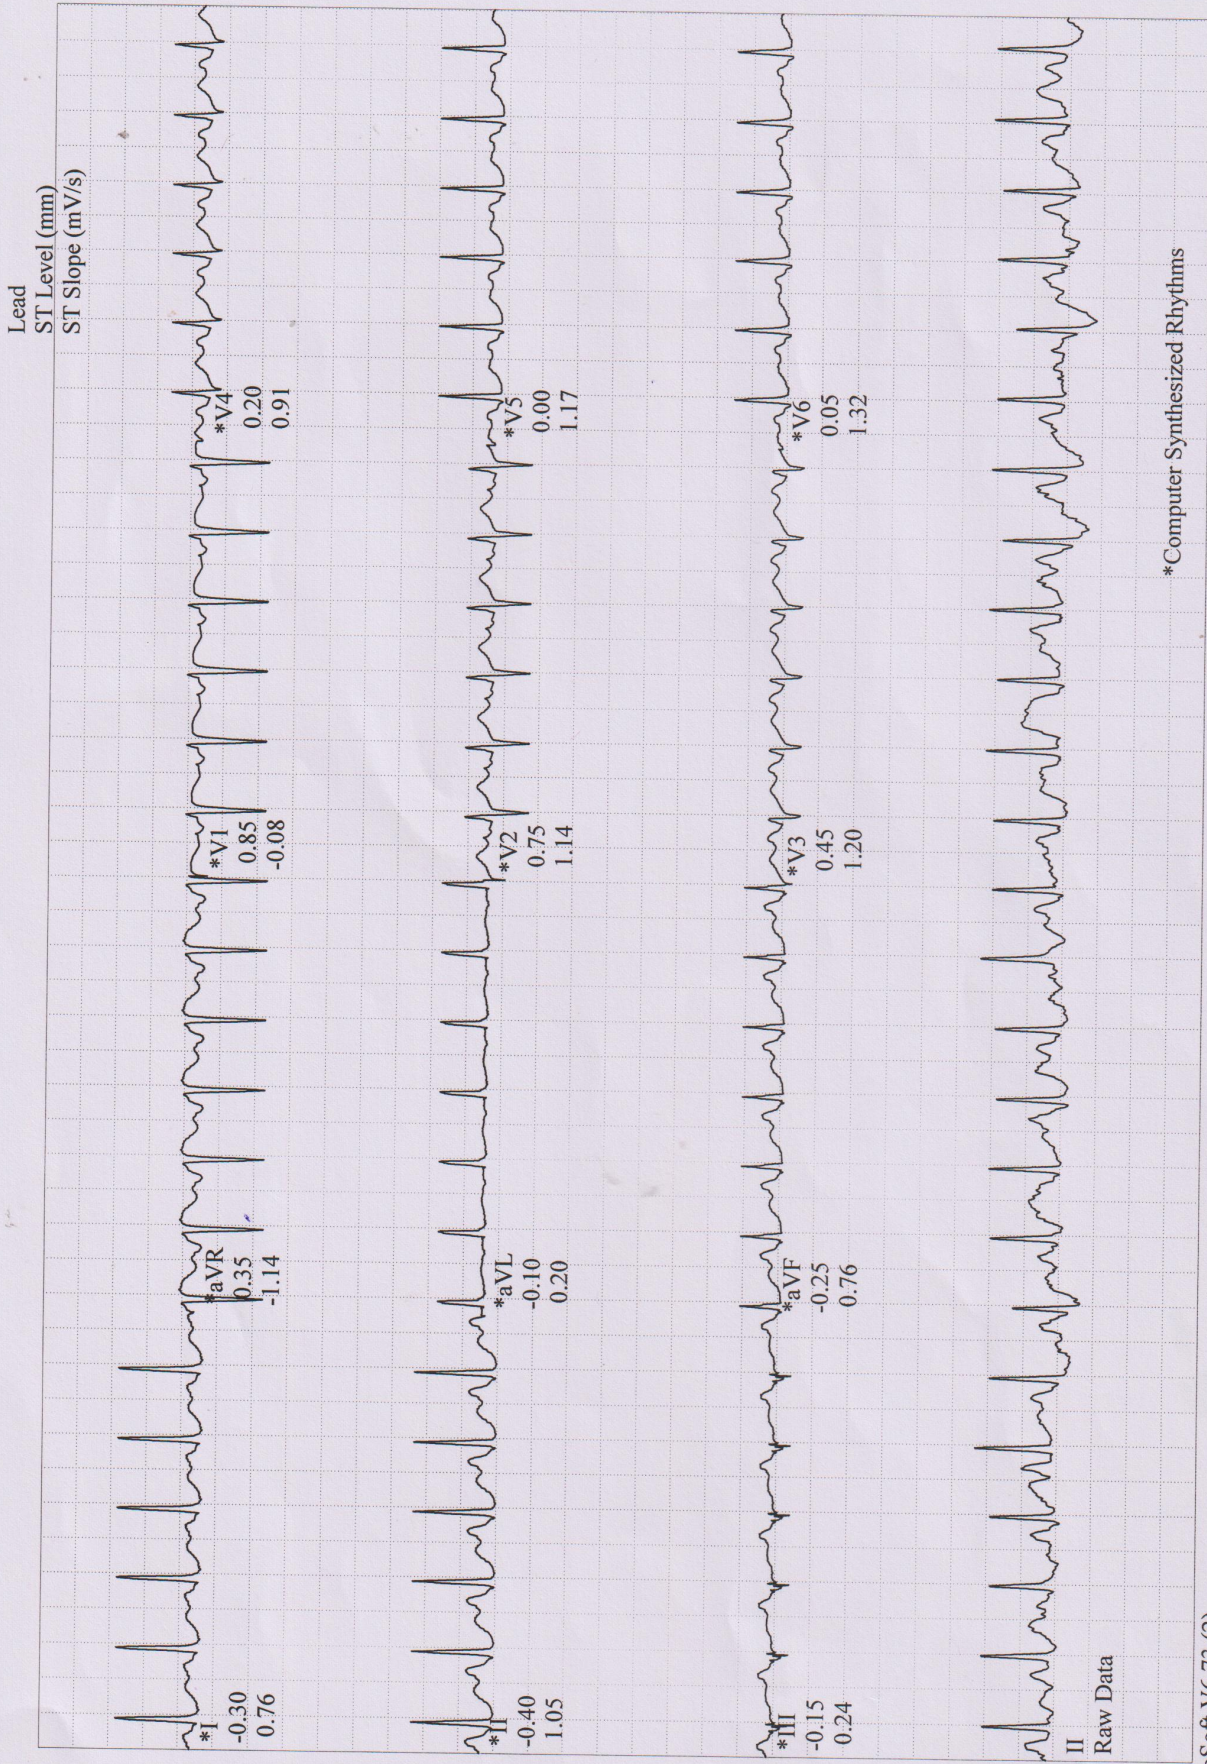 Lead
ST Level (mm)
ST Slope (mV/s)
*I
-0.30
0.76
*aVR
0.35
-1.14
*V1
0.85
-0.08
*V4
0.20
0.91
*II
-0.40
1.05
*aVL
-0.10
0.20
*V2
0.75
1.14
*V5
0.00
1.17
*III
-0.15
0.24
*aVF
-0.25
0.76
*V3
0.45
1.20
*V6
0.05
1.32
II
Raw Data
*Computer Synthesized Rhythms